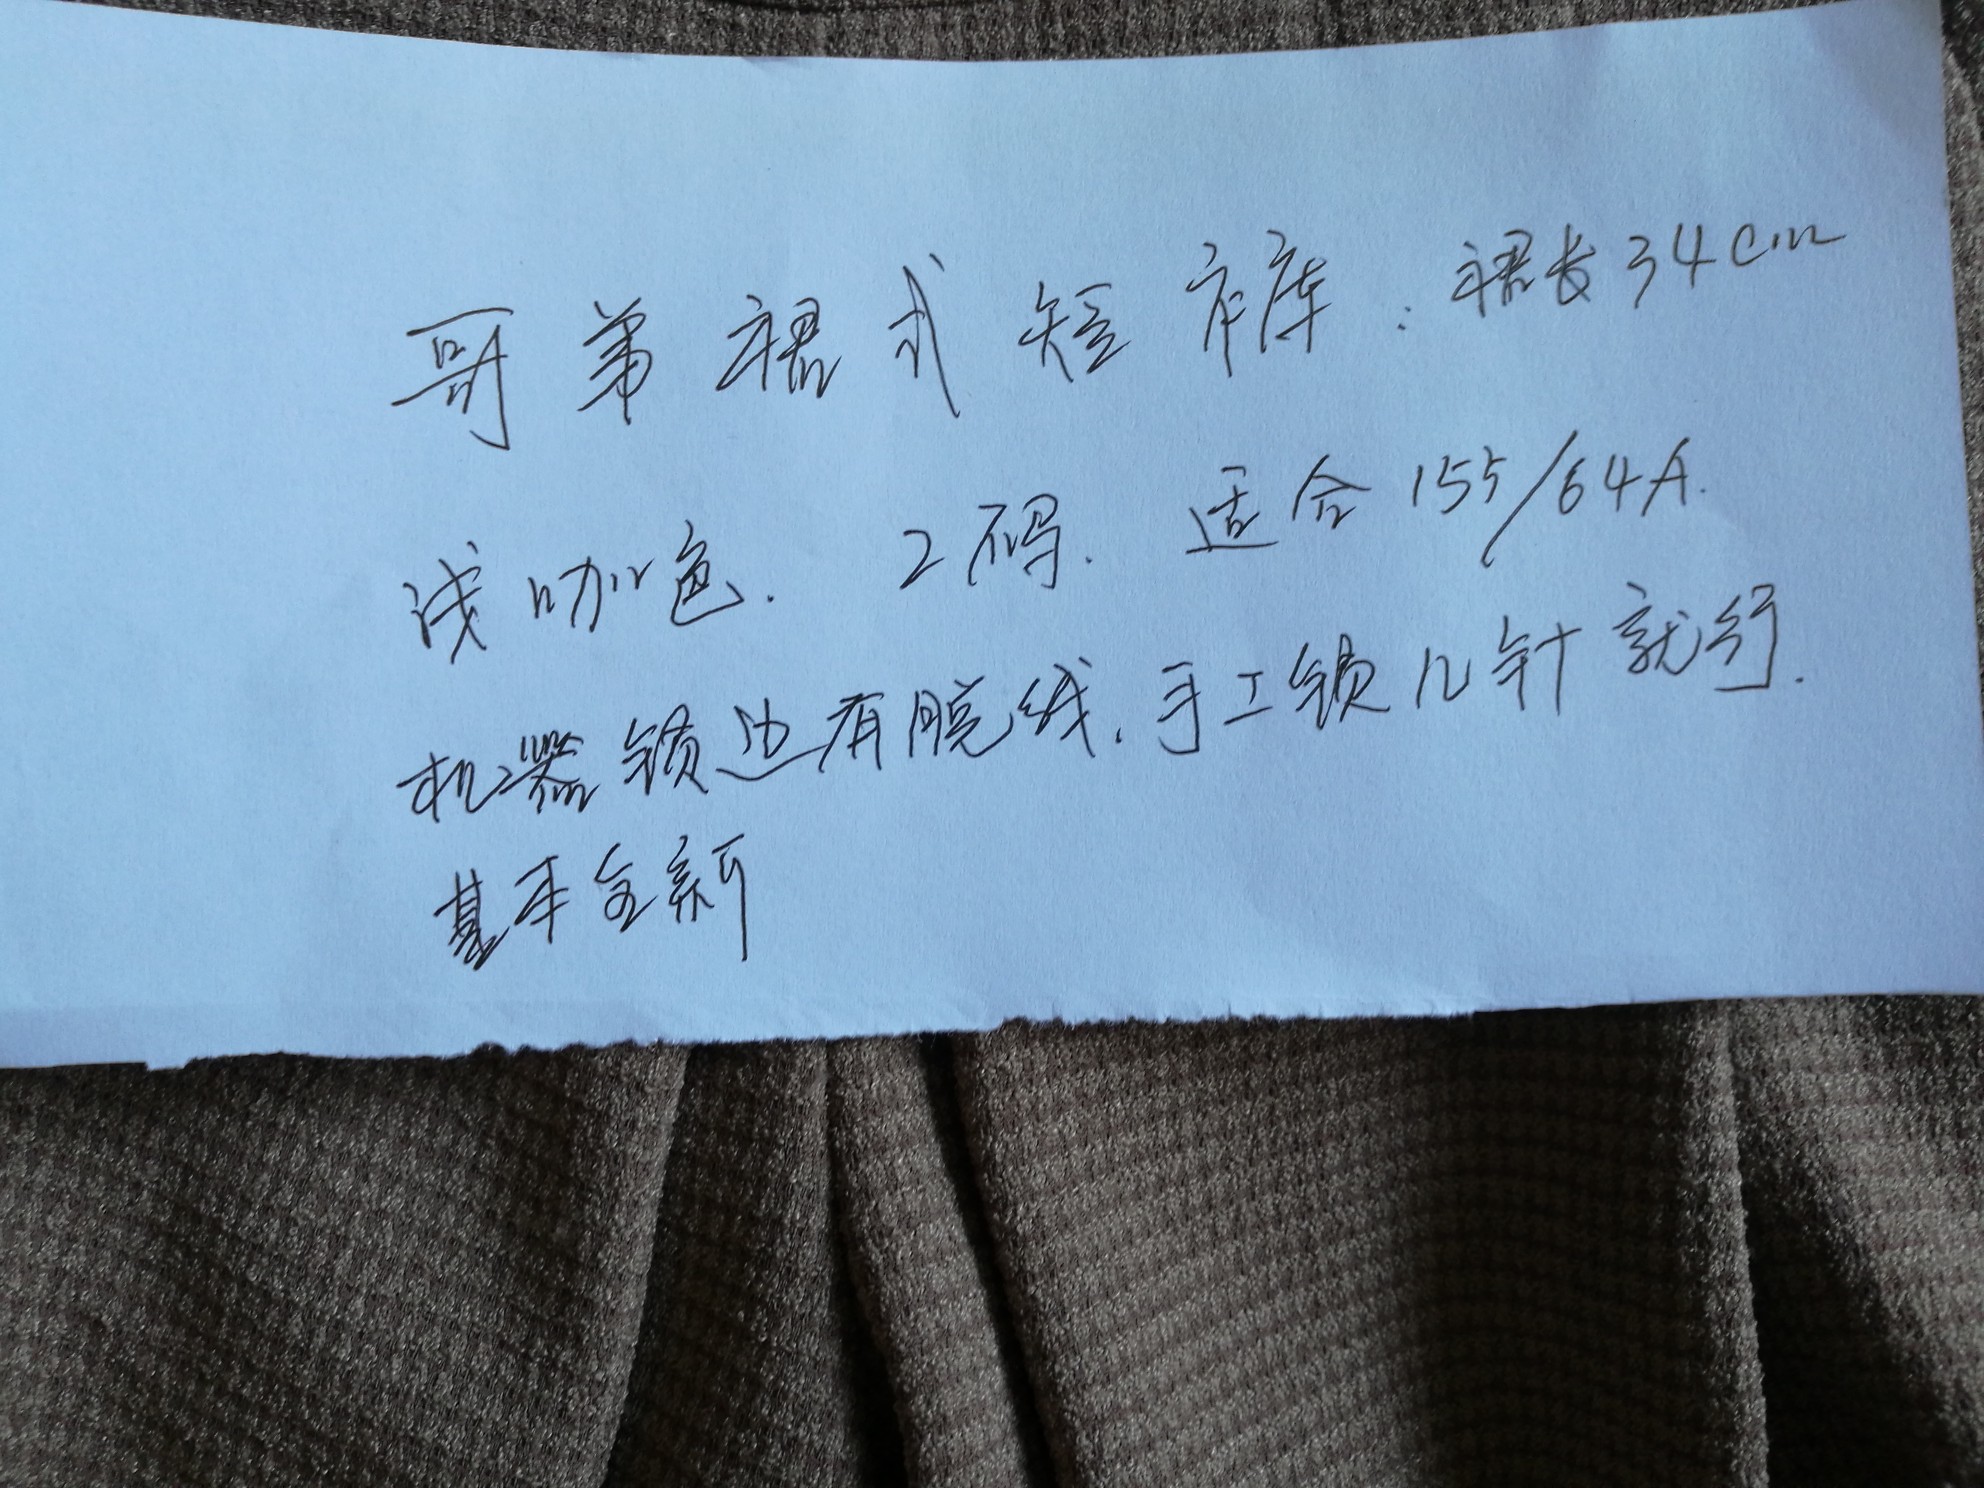 哥弟裙式短裤:裙长34cm
浅咖色.2码.适合155/64A.
机器锁边有脱线.手工锁几针就行.
基本全新